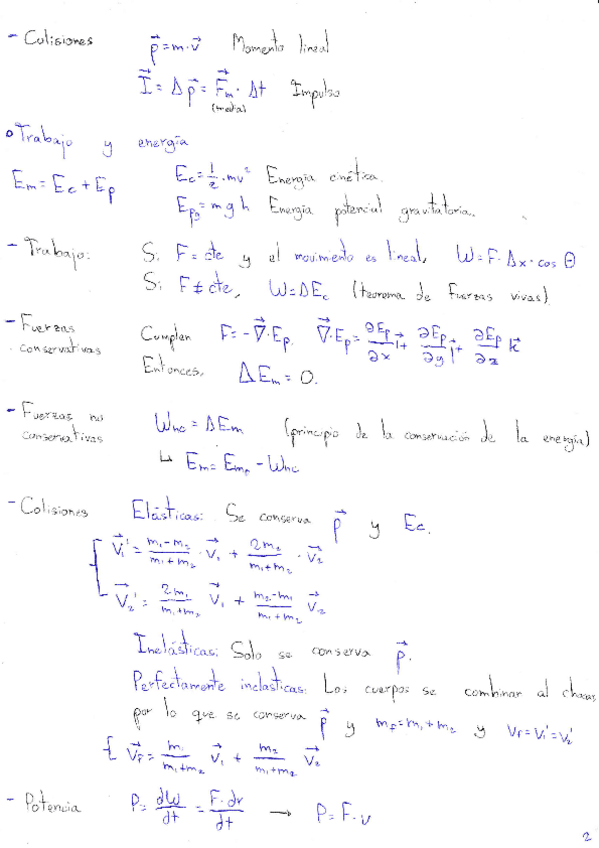 - Colisiones p⃗ = m·v⃗ Momento lineal
I⃗ = Δp⃗ = F⃗m · Δt Impulso
(media)
• Trabajo y energía
Em = Ec + Ep Ec = 1/2 · mv² Energía cinética.
Epg = m g h Energía potencial gravitatoria.
- Trabajo: Si F = cte y el movimiento es lineal, W = F · Δx · cos θ
Si F ≠ cte, W = ΔEc (teorema de fuerzas vivas)
- Fuerzas conservativas Cumplen F = -∇⃗·Ep. ∇⃗·Ep = ∂Ep/∂x i⃗ + ∂Ep/∂y j⃗ + ∂Ep/∂z k⃗
Entonces, ΔEm = 0.
- Fuerzas no conservativas Wnc = ΔEm (principio de la conservación de la energía)
↳ Em₀ = Emf - Wnc
- Colisiones Elásticas: Se conserva p⃗ y Ec.
{ v⃗₁' = (m₁-m₂)/(m₁+m₂) · v⃗₁ + 2m₂/(m₁+m₂) · v⃗₂
v⃗₂' = 2m₁/(m₁+m₂) v⃗₁ + (m₂-m₁)/(m₁+m₂) v⃗₂
Inelásticas: Solo se conserva p⃗.
Perfectamente inelásticas: Los cuerpos se combinan al chocar,
por lo que se conserva p⃗ y mF = m₁+m₂ y VF = V₁' = V₂'
{ v⃗F = m₁/(m₁+m₂) v⃗₁ + m₂/(m₁+m₂) v⃗₂
- Potencia P = dW/dt = F·dr/dt → P = F·v
2